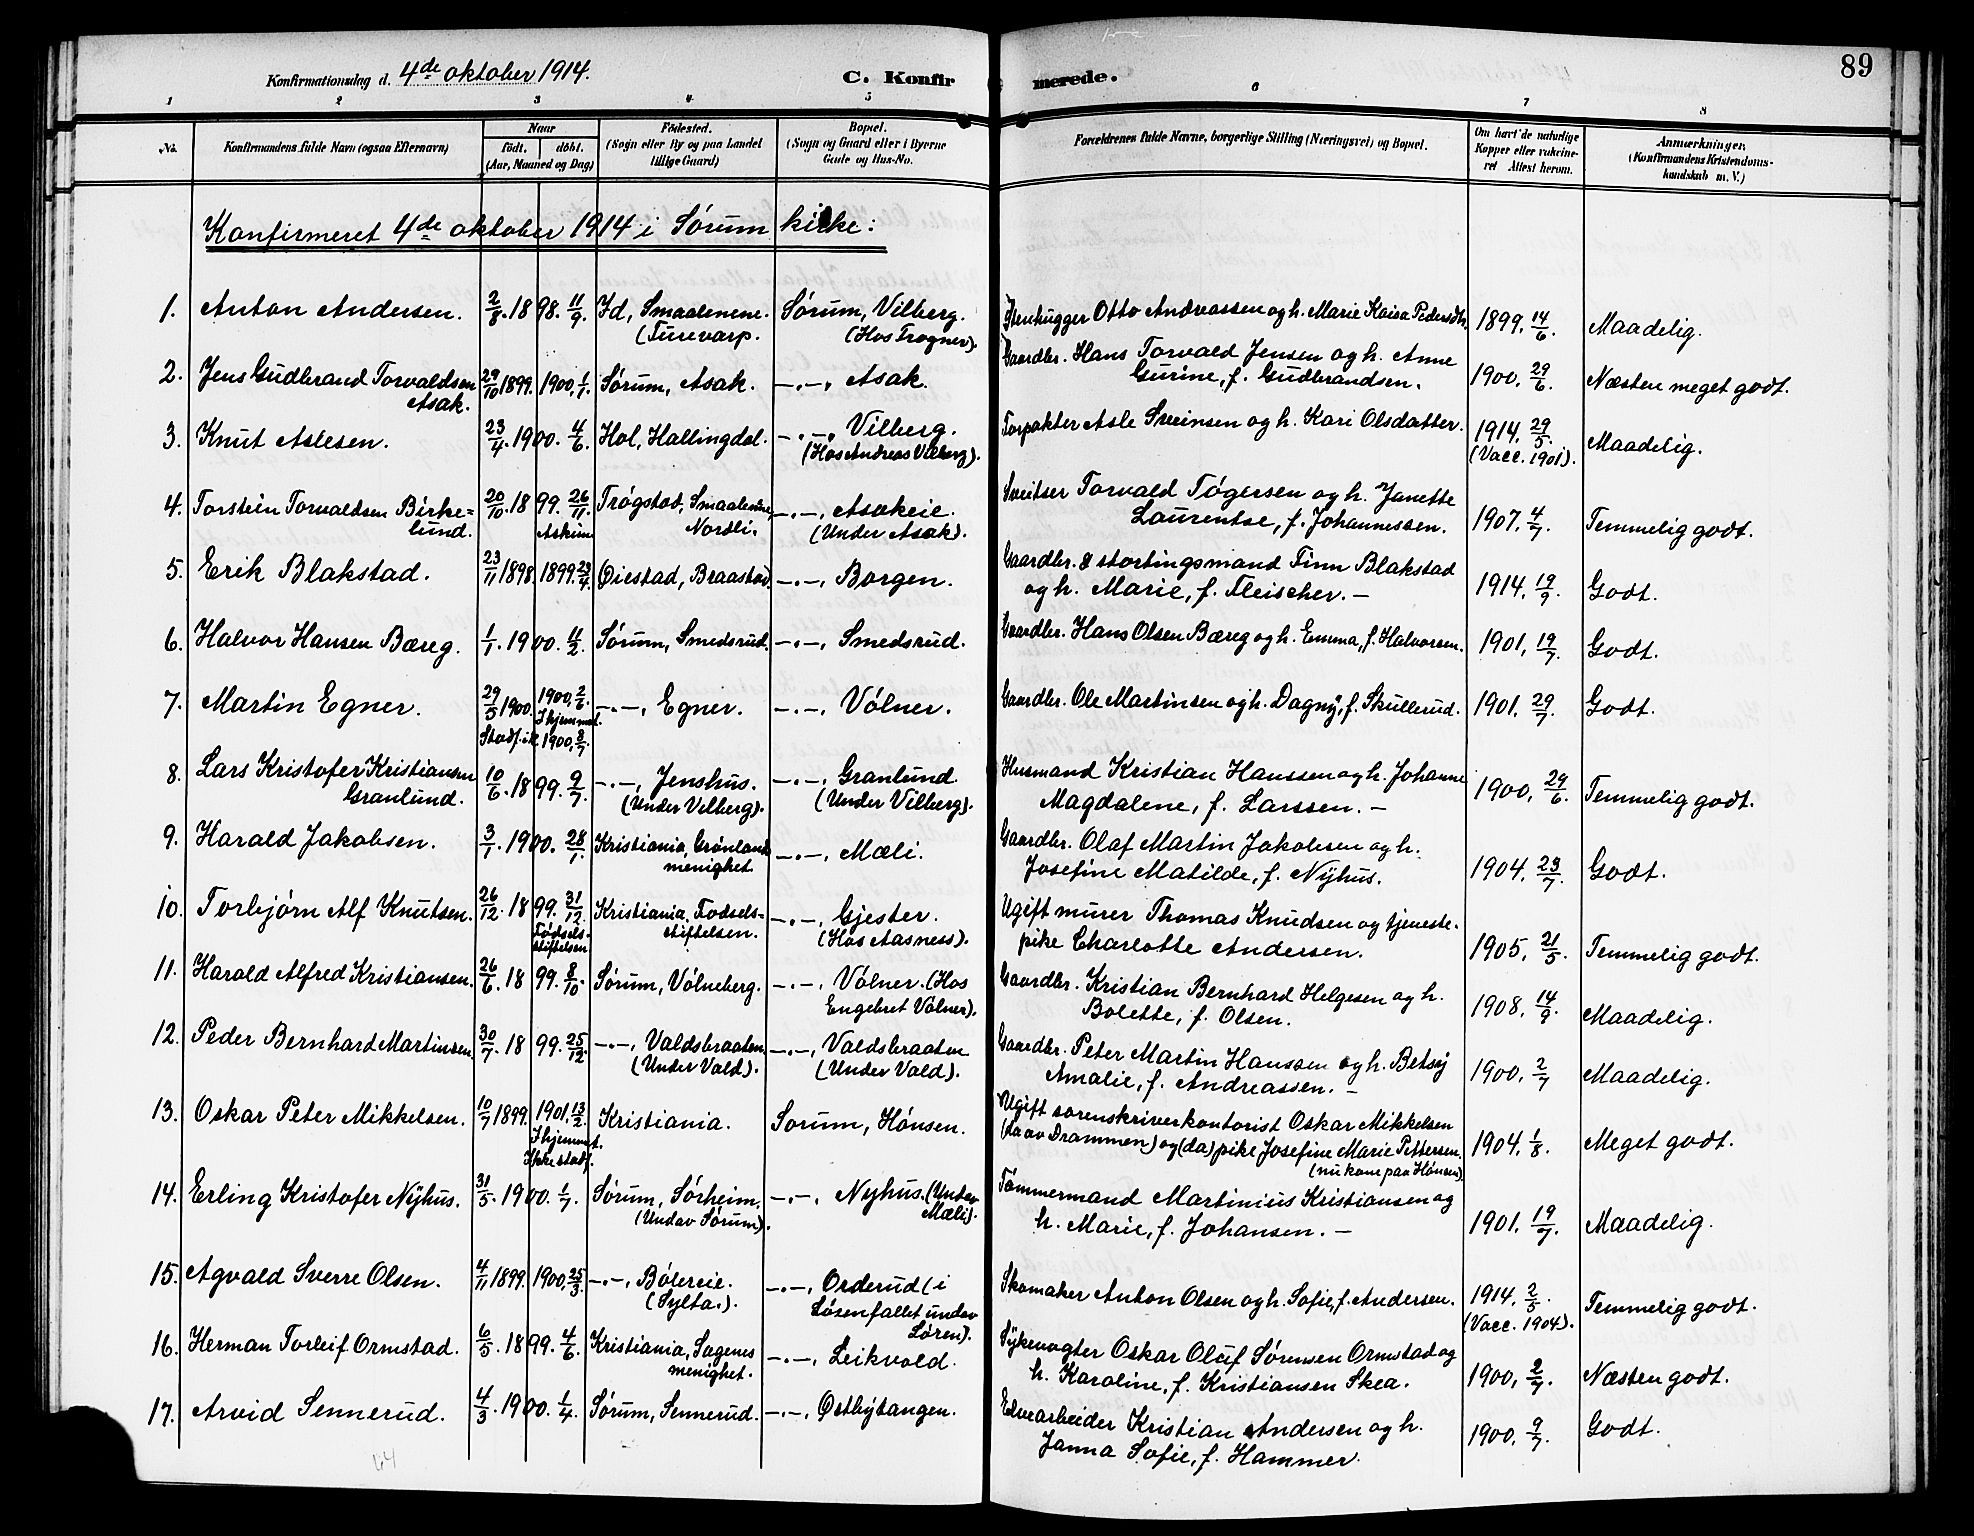 Konfirmationsdag d. 4de oktober 1914. C. Konfirmerede. 89
1 2 3 4 5 6 7 8
No. Konfirmandens fulde Navn (ogsaa Efternavn) Naar født. døbt. (Aar, Maaned og Dag) Födested. (Sogn eller By og paa Landet tillige Gaard) Bopæl. (Sogn og Gaard eller i Byerne Gade og Hus-No. Forældrenes fulde Navne, borgerlige Stilling (Næringsvei) og Bopæl. Om havt de naturlige Kopper eller vakcineret Attest herom. Anmærkninger. (Konfirmandens Kristendomskundskab m. V.)
Konfirmeret 4de oktober 1914 i Sørum kirke:
1. Anton Andersen. 2/8. 1898. 11/9. Id, Smaalenene. (Turevarp. Sørum, Vilberg. (Hos Trogner). Stenhugger Otto Andreassen og h. Marie Kaisa Pedersdtr. 1899, 14/6. Maadelig.
2. Jens Gudbrand Torvaldsen Asak. 29/10 1899. 1900, 1/1. Sørum, Asak. –"–, Asak. Gaardbr. Hans Torvald Jensen og h. Anne Gurine, f. Gudbrandsen. 1900, 29/6. Næsten meget godt.
3. Knut Aslesen. 23/4. 1900. 4/6. Hol, Hallingdal. –"–, Vilberg. (Hos Andreas Vilberg). Forpakter Asle Sveinsen og h. Kari Olsdatter. 1914, 29/5. (Vacc. 1901). Maadelig.
4. Torstein Torvaldsen Birkelund. 20/10. 1899. 26/11. Askim Trøgstad, Smaalenene, Nordli. –"–, Asakeie. (Under Asak). Sveitser Torvald Tøgersen og h. Janette Laurentse, f. Johannessen. 1907, 4/7. Temmelig godt.
5. Erik Blakstad. 23/11 1898. 1899. 23/4. Øiestad, Braastad. –"–, Borgen. Gaardbr. & stortingsmand Finn Blakstad og h. Marie, f. Fleischer. – 1914, 19/9. Godt.
6. Halvor Hansen Bæreg. 1/1. 1900. 11/2. Sørum, Smedsrud. –"–, Smedsrud. Gaardbr. Hans Olsen Bæreg og h. Emma, f. Halvorsen. 1901, 19/7. Godt.
7. Martin Egner. 29/5 1900. 1900, 2/6. I hjemmet. Stadf. i k. 1900, 8/7. –"–, Egner. –"–, Vølner. Gaardbr. Ole Martinsen og h. Dagny, f. Skullerud. 1901. 29/7. Godt.
8. Lars Kristofer Kristiansen Granlund. 10/6. 1899. 9/7. –"–, Jenshus. (Under Vilberg). –"–, Granlund. (Under Vilberg). Husmand Kristian Hanssen og h. Johanne Magdalene, f. Larssen. – 1900, 29/6. Temmelig godt.
9. Harald Jakobsen. 3/1. 1900. 28/1. Kristiania, Grønlands menighet. –"–, Mæli. Gaardbr. Olaf Martin Jakobsen og h. Josefine Matilde, f. Nyhus. 1904, 23/7. Godt.
10. Torbjørn Alf Knutsen. 26/12. 1899. 31/12. Fødselsstiftelsen Kristiania, Fødselsstiftelsen. –"–, Gjester. (Hos Aasness). Ugift murer Thomas Knudsen og tjenestepike Charlotte Andersen. 1905, 21/5. Temmelig godt.
11. Harald Alfred Kristiansen. 26/6. 1899. 8/10. Sørum, Vølneberg. –"–, Vølner. (Hos Engebret Vølner). Gaardbr. Kristian Bernhard Helgesen og h. Bolette, f. Olsen. 1908, 14/9. Maadelig.
12. Peder Bernhard Martinsen. 30/7. 1899. 25/12. –"–, Valdsbraaten. (Under Vald). –"–, Valdsbraaten (Under Vald). Gaardbr. Peter Martin Hanssen og h. Betsy Amalie, f. Andreassen. – 1900. 2/7. Maadelig.
13. Oskar Peter Mikkelsen. 10/7 1899. 1901. 13/2. I hjemmet. Ikke stadf. Kristiania. Sørum, Hønsen. Ugift sorenskriverkontorist Oskar Mikkelsen (da av Drammen) og (da) pike Josefine Marie Pettersen. (nu kone paa Hønsen). 1904. 1/8. Meget godt.
14. Erling Kristofer Nyhus. 31/5. 1900. 1/7. Sørum, Sørheim. (Under Sørum). –"–, Nyhus. (Under Mæli). Tømmermand Martinius Kristiansen og h. Marie, f. Johansen. – 1901. 19/7. Maadelig.
15. Agvald Sverre Olsen. 4/11 1899. 1900, 25/3. –"–, Bølereie. (Sylta.). –"–, Orderud (i Sørenfallet under Løren). Skomaker Anton Olsen og h. Sofie, f. Andersen. 1914, 2/5. (Vacc. 1904). Temmelig godt.
16. Herman Torleif Ormstad. 6/5. 1899. 4/6. Kristiania, Sagenes menighet. –"–, Leikvold. Sykevogter Oskar Oluf Sørensen Ormstad og h. Karoline, f. Kristiansen Skea. 1900, 2/7. Næsten godt.
17. Arvid Sennerud. 4/3. 1900. 1/4. Sørum, Sennerud. –"–, Østbytangen. Elvearbeider Kristian Andersen og h. Janna Sofie, f. Hammer. 1900, 9/7. Godt.
64